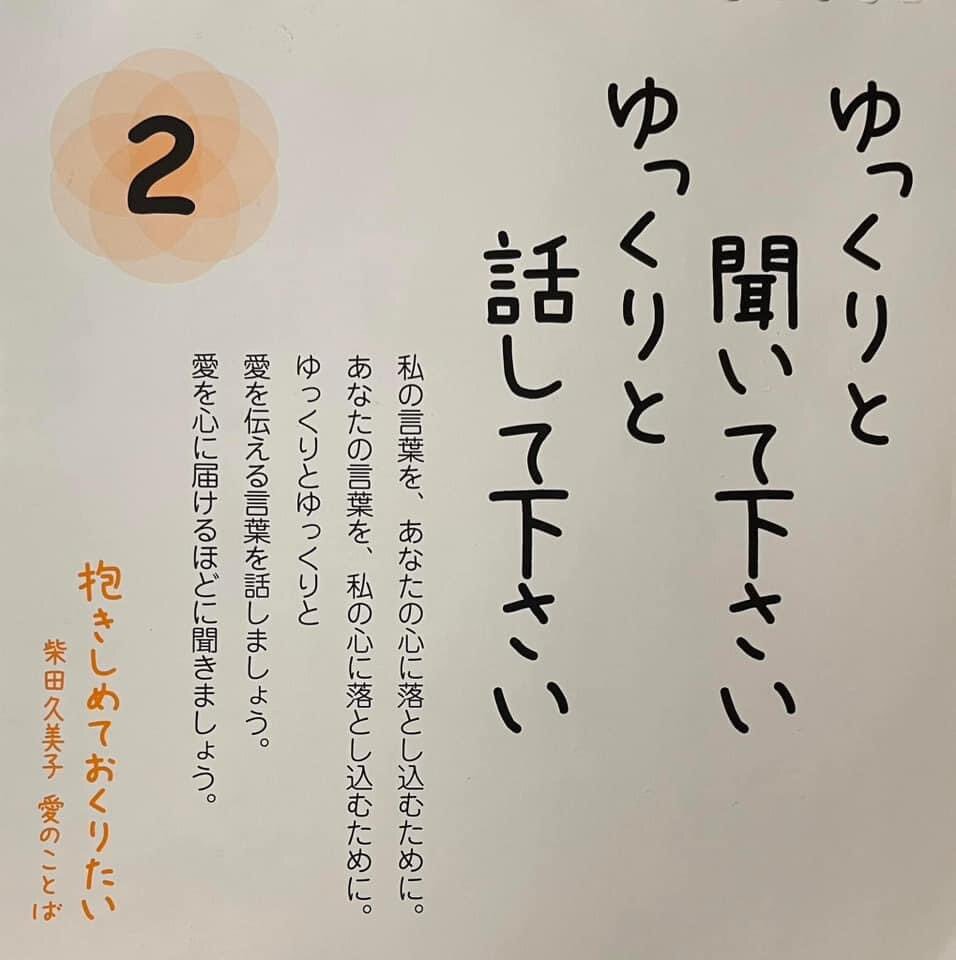 ゆっくりと
聞いて下さい
ゆっくりと
話して下さい
私の言葉を、あなたの心に落とし込むために。
あなたの言葉を、私の心に落とし込むために。
ゆっくりとゆっくりと
愛を伝える言葉を話しましょう。
愛を心に届けるほどに聞きましょう。
2
抱きしめておくりたい
柴田久美子 愛のことば